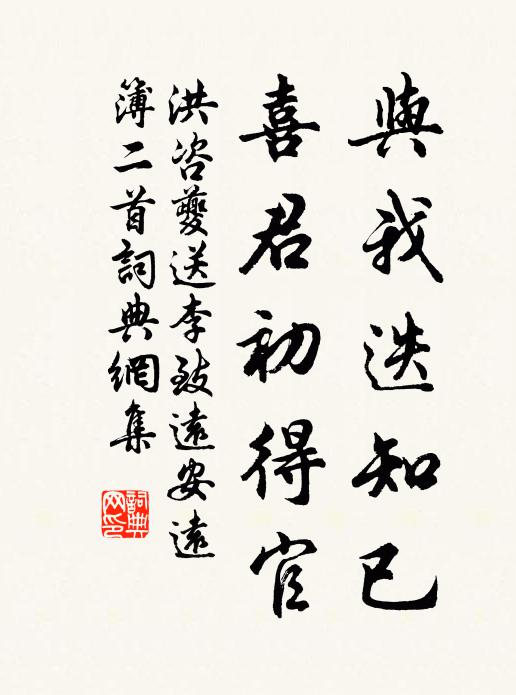 與我迭知已
喜君初得官
洪咨夔送李致遠安遠
簿二首詞典網集
詞典
网印